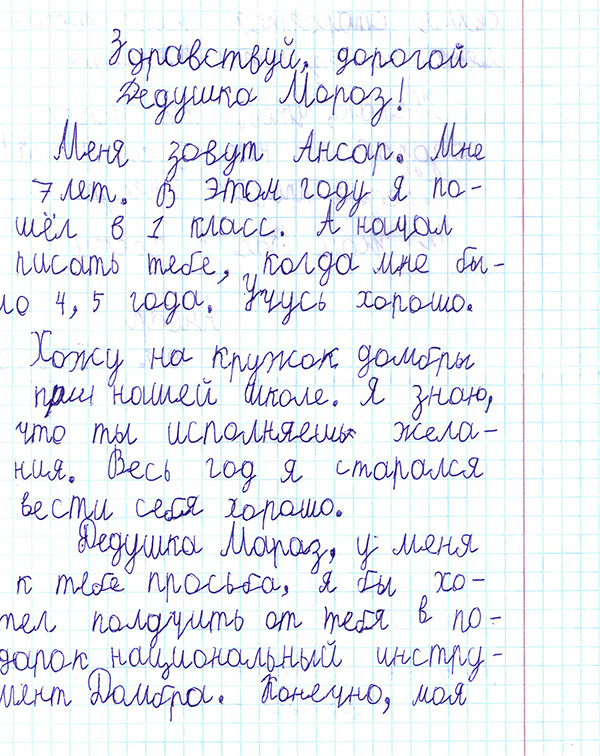 Здравствуй, дорогой
Дедушка Мороз!
Меня зовут Ансар. Мне
7 лет. В этом году я по-
шёл в 1 класс. А начал
писать тебе, когда мне бы-
ло 4,5 года. Учусь хорошо.
Хожу на кружок домбры
при нашей школе. Я знаю,
что ты исполняешь жела-
ния. Весь год я старался
вести себя хорошо.
Дедушка Мараз, у меня
к тебе просьба, я бы хо-
тел получить от тебя в по-
дарок национальный инстру-
мент Домбра. Конечно, моя